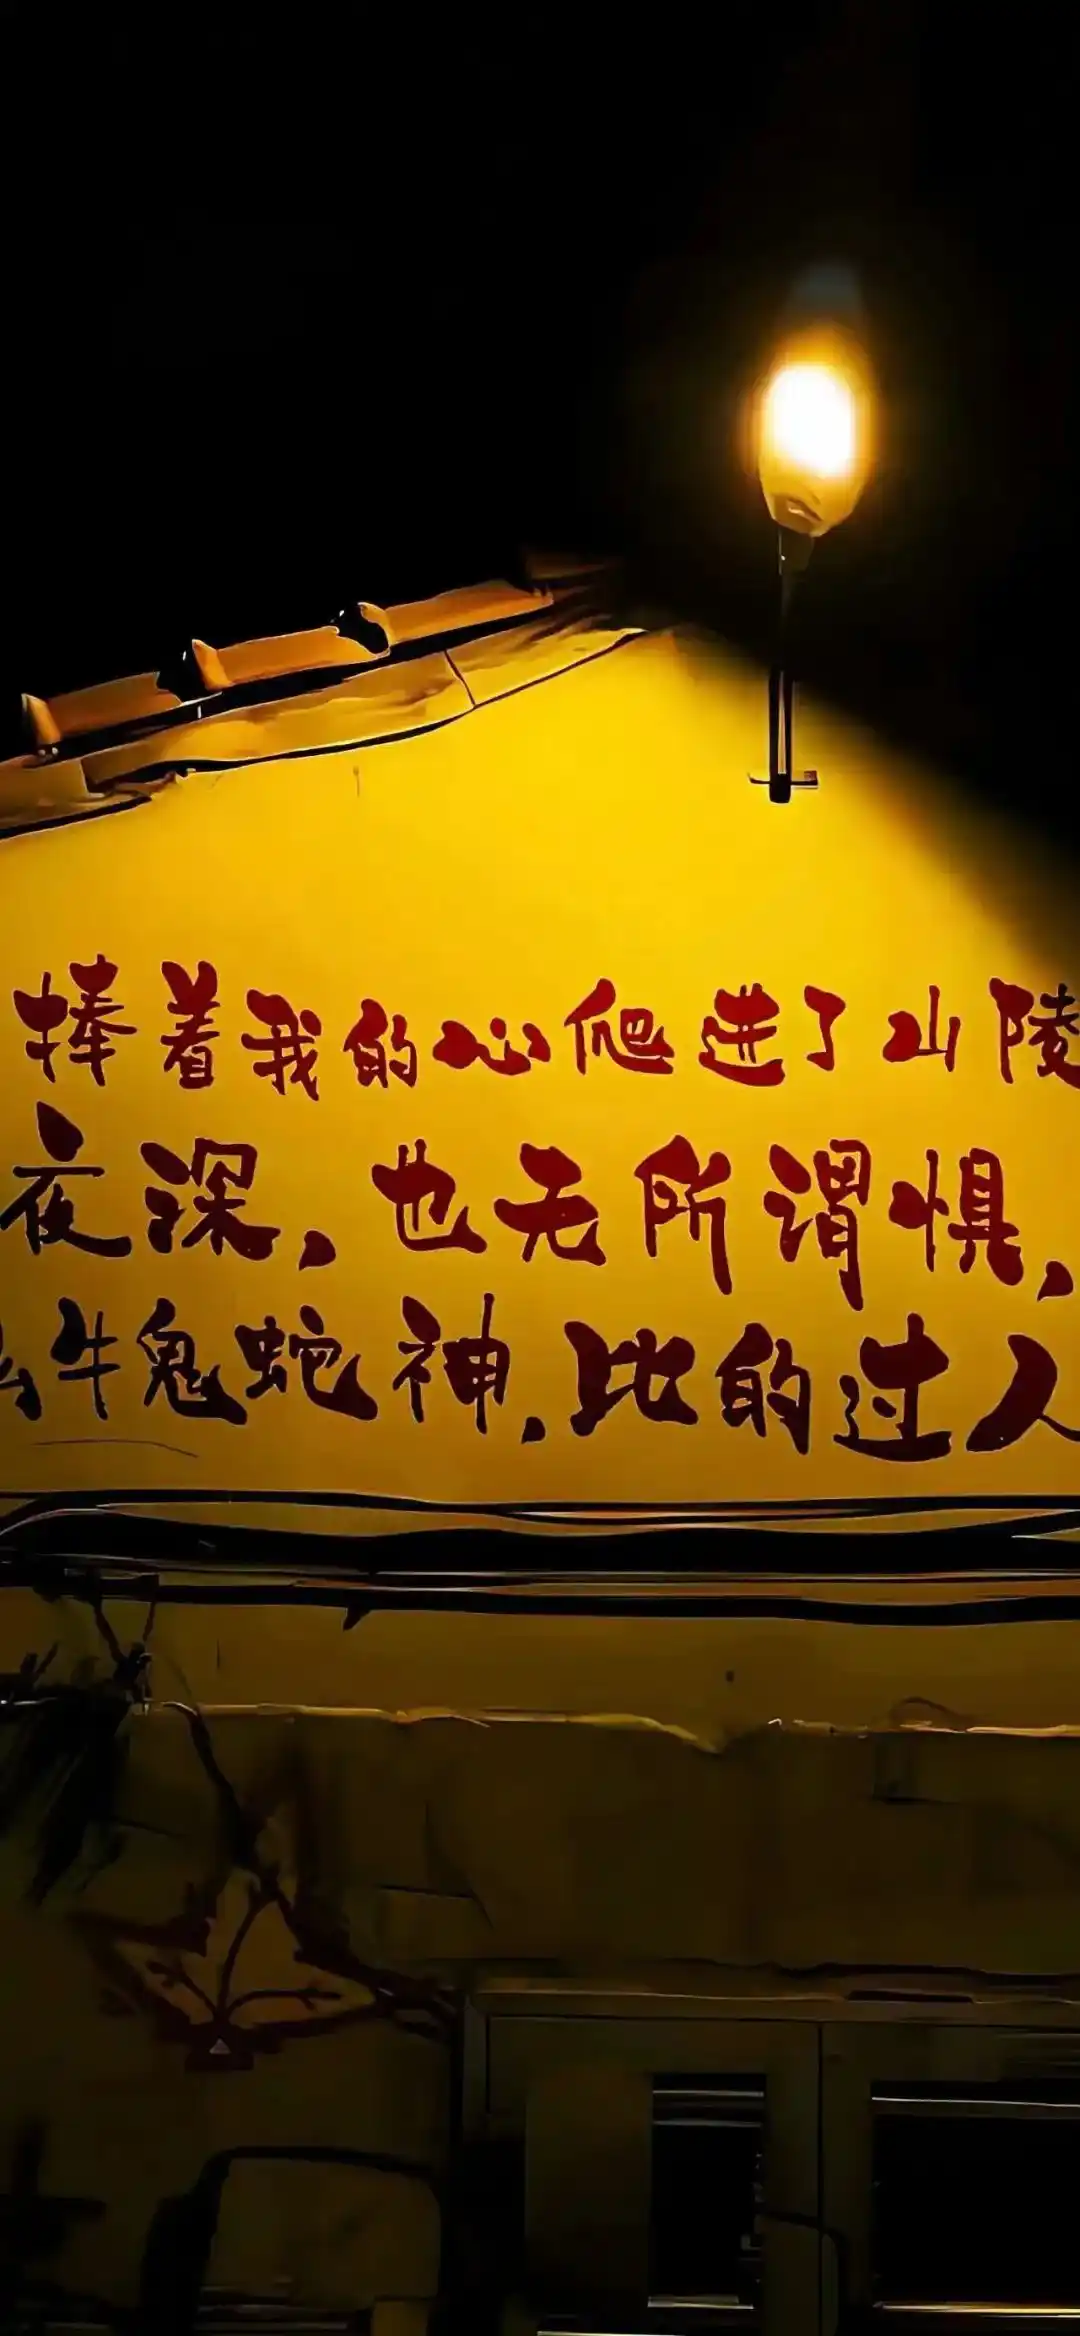 捧着我的心爬进了山陵
夜深，也无所谓惧，
么牛鬼蛇神，比的过人